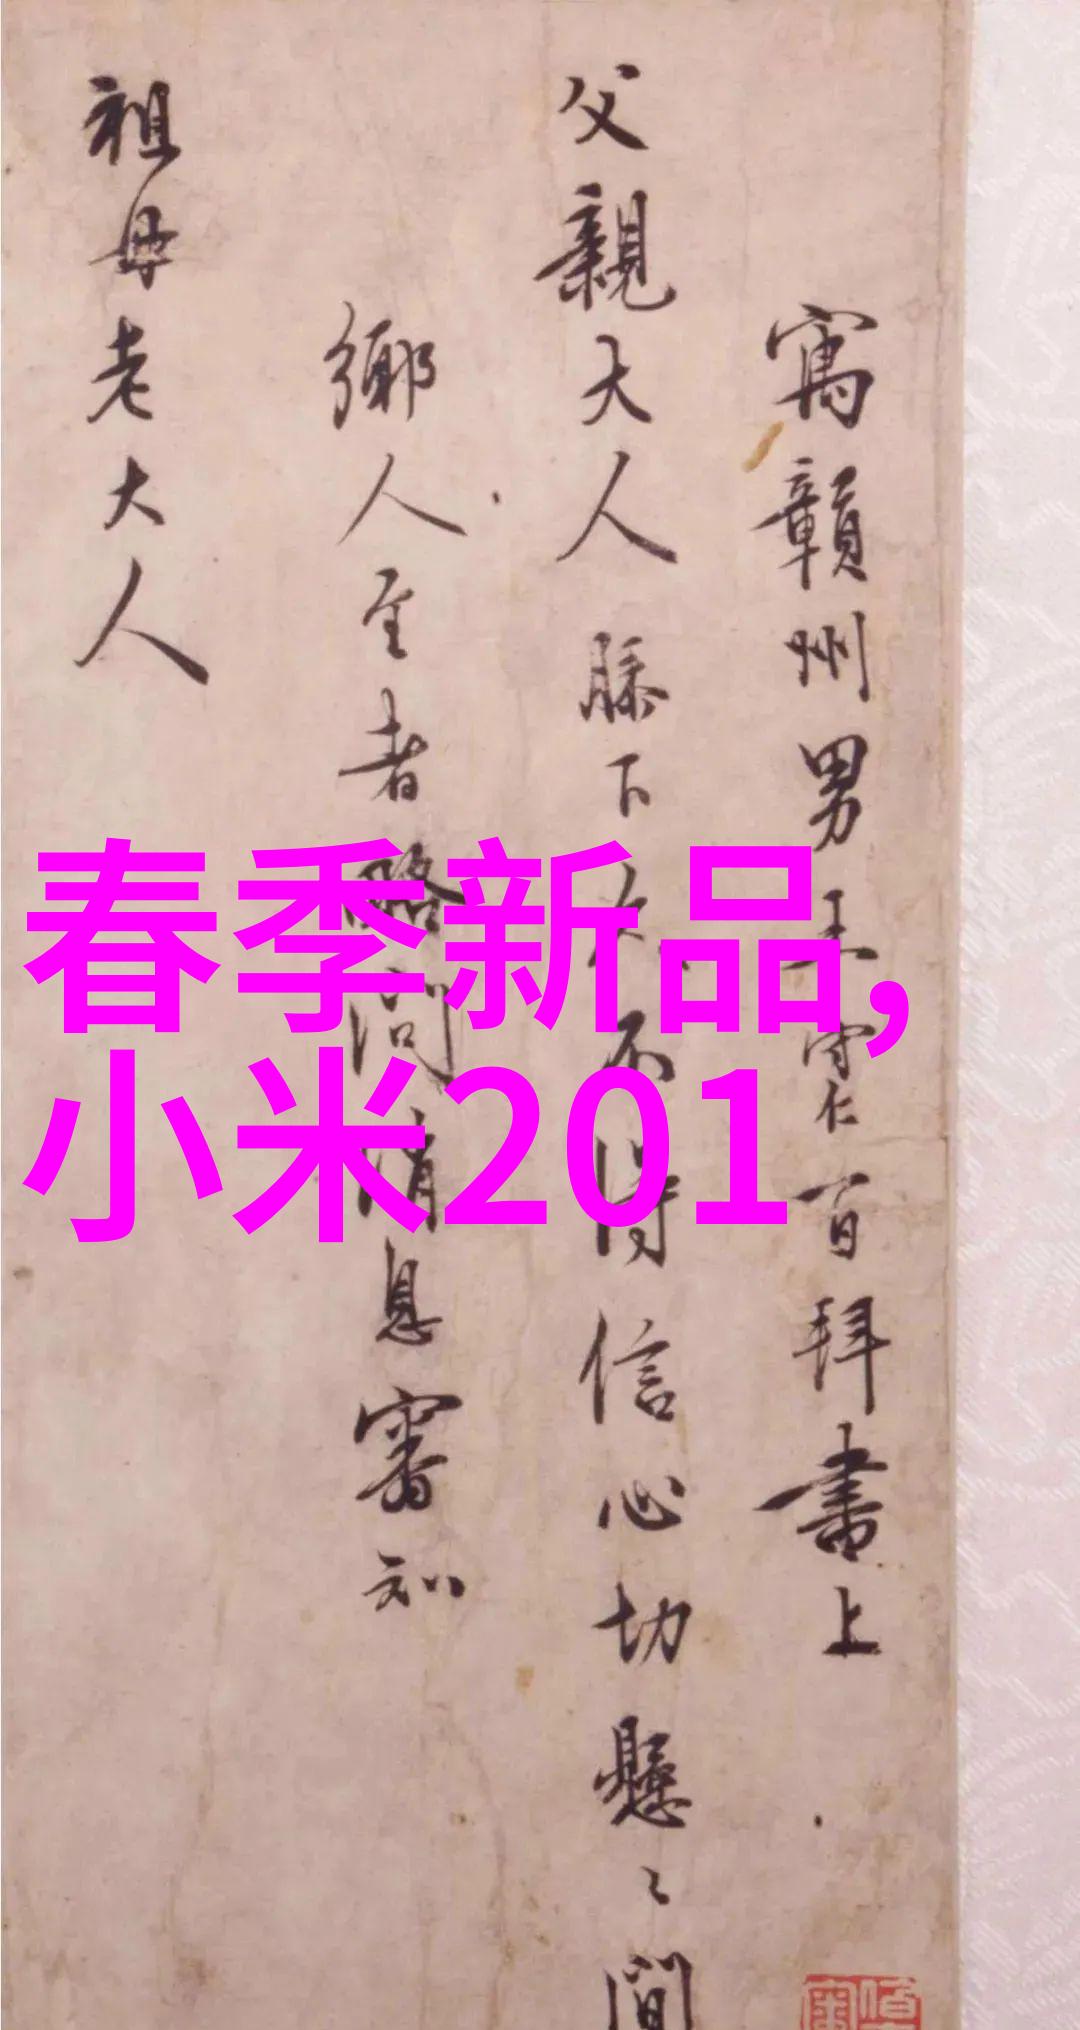 寓贛州男王守仁百拜書上
父親大人膝下久不得信心切懸〻間
鄉人至者略問消息審知
祖母老大人
春季新品,
小米201